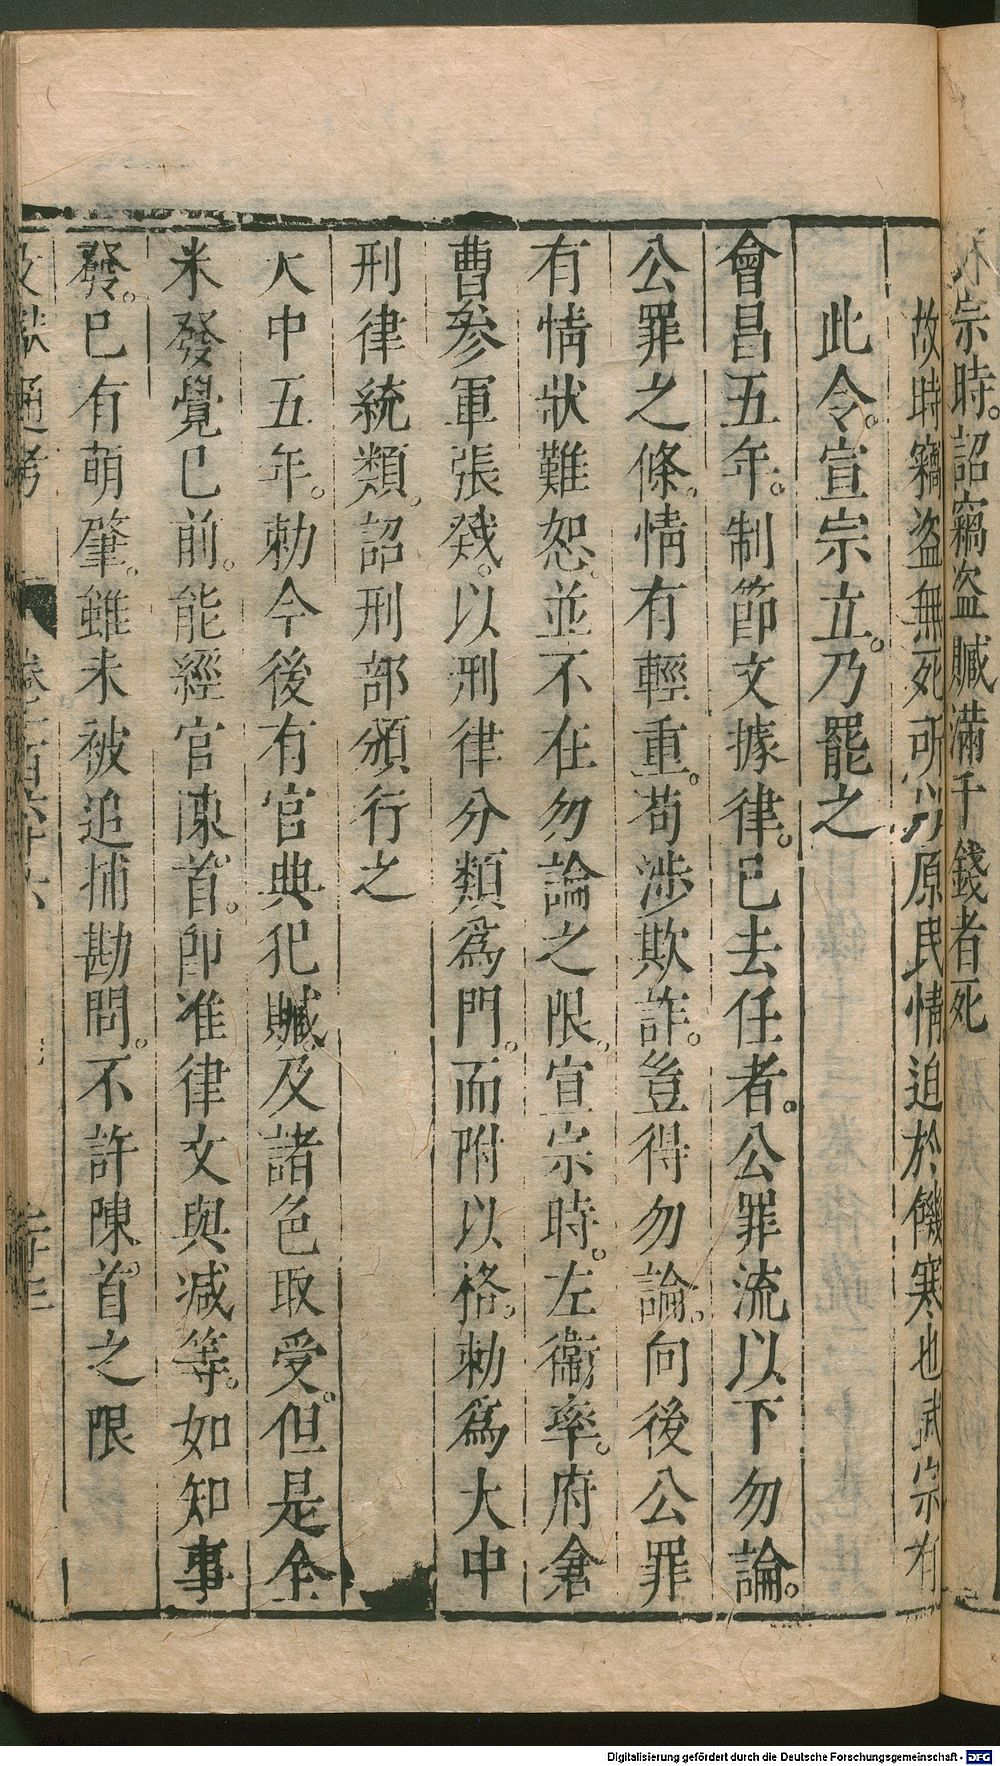 宗時。詔竊盜贓滿千錢者死
故時竊盜無死所以原民情迫於饑寒也武宗有
此令。宣宗立。乃罷之
會昌五年。制節文據律。已去任者。公罪流以下勿論。
公罪之條。情有輕重。苟涉欺詐。豈得勿論。向後公罪
有情狀難恕。並不在勿論之限。宣宗時。左衞率。府倉
曹參軍張戣。以刑律分類爲門。而附以格。勅爲大中
刑律統類。詔刑部頒行之
大中五年。勅今後有官典犯贓。及諸色取受。但是全
未發覺已前。能經官陳首。即准律文與減等。如知事
發。已有萌肇。雖未被追捕勘問。不許陳。首之限
文獻通考 卷一百六十六
Digitalisierung gefördert durch die Deutsche Forschungsgemeinschaft - DFG